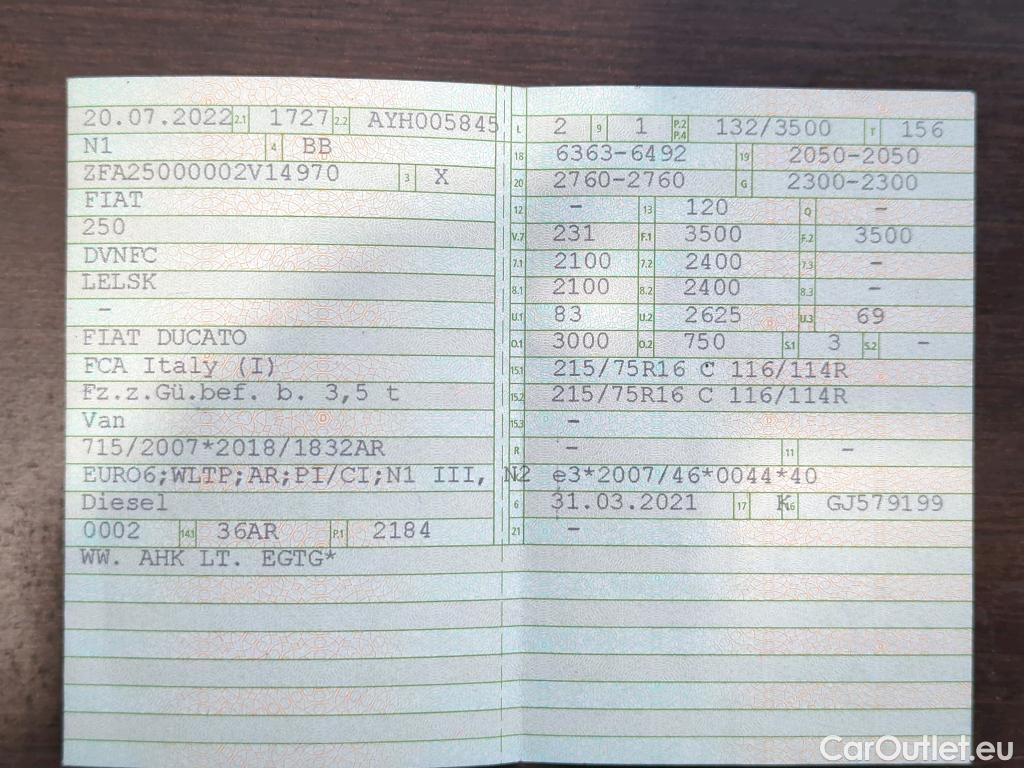 20.07.2022 2.1 1727 2.2 AYH005845
N1 4 BB
ZFA25000002V14970 3 X
FIAT
250
DVNFC
LELSK
-
FIAT DUCATO
FCA Italy (I)
Fz.z.Gü.bef. b. 3,5 t
Van
715/2007*2018/1832AR
EURO6;WLTP;AR;PI/CI;N1 III, N2
Diesel
0002 14.1 36AR P.1 2184
WW. AHK LT. EGTG*
L 2 9 1 P.2 P.4 132/3500 T 156
18 6363-6492 19 2050-2050
20 2760-2760 G 2300-2300
12 - 13 120 Q -
V.7 231 F.1 3500 F.2 3500
7.1 2100 7.2 2400 7.3 -
8.1 2100 8.2 2400 8.3 -
U.1 83 U.2 2625 U.3 69
O.1 3000 O.2 750 S.1 3 S.2 -
15.1 215/75R16 C 116/114R
15.2 215/75R16 C 116/114R
15.3 -
R - 11 -
e3*2007/46*0044*40
6 31.03.2021 17 K 16 GJ579199
21 -
CarOutlet.eu